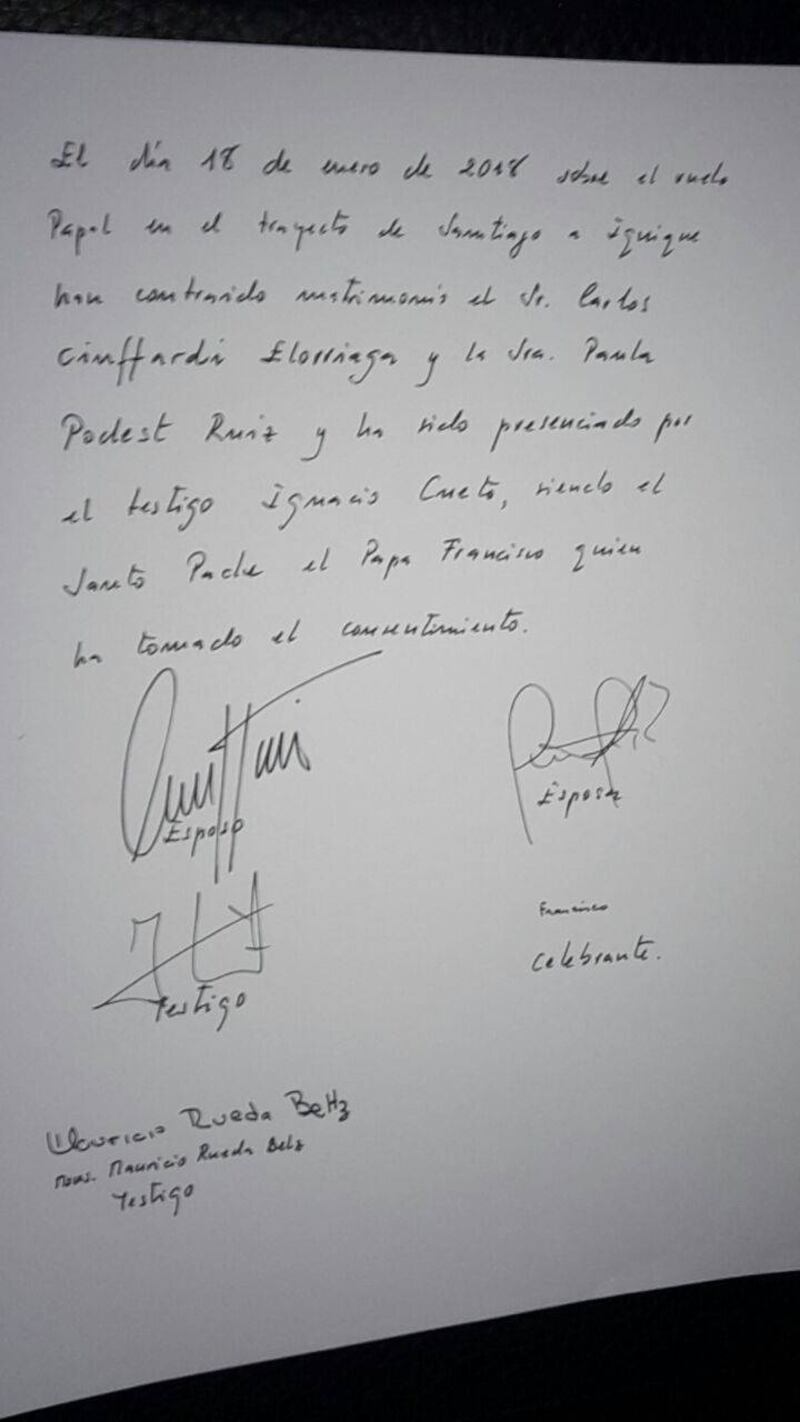 El día 18 de enero de 2018 sobre el vuelo
Papal en el trayecto de Santiago a Iquique
han contraido matrimonio el Sr. Carlos
Ciuffardi Elorriaga y la Sra. Paula
Podest Ruiz y ha sido presenciado por
el testigo Ignacio Cueto, siendo el
Santo Padre el Papa Francisco quien
ha tomado el consentimiento.
Esposo
Esposa
Francisco
Celebrante.
Testigo
Mauricio Rueda Beltz
Mons. Mauricio Rueda Beltz
Testigo